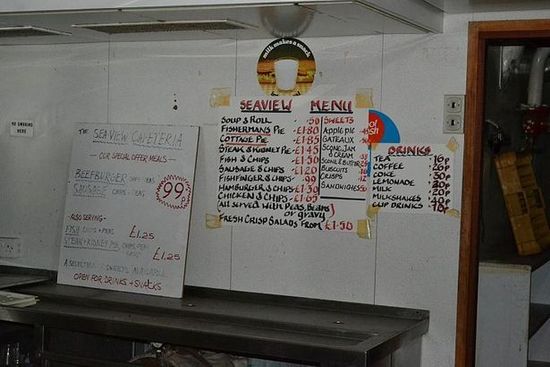 NO SMOKING
HERE
THE SEA VIEW CAFETERIA
— OUR SPECIAL OFFER MEALS —
BEEFBURGER CHIPS + PEAS
SAUSAGE CHIPS + PEAS
99p
ALSO SERVING -
FISH CHIPS + PEAS £1.25
STEAK + KIDNEY PIE, CHIPS, PEAS
£1.25
A SELECTION SWEETS AVAILABLE
OPEN FOR DRINKS + SNACKS
milk makes a snack
SEAVIEW MENU
SOUP & ROLL .50
FISHERMANS PIE £1.80
COTTAGE PIE £1.85
STEAK & KIDNEY PIE £1.45
FISH & CHIPS £1.30
SAUSAGE & CHIPS £1.20
FISHFINGER & CHIPS .99
HAMBURGER & CHIPS £1.30
CHICKEN & CHIPS £1.65
ALL SERVED WITH PEAS, BEANS
OR GRAVY
FRESH CRISP SALADS FROM £1.50
SWEETS
APPLE PIE
GATEAUX
SCONE, JAM
& CREAM
SCONE & BUTTER
BUSCUITS
CRISPS
SANDWICHES
DRINKS
TEA 16p
COFFEE
COKE
LEMONADE
MILK
MILKSHAKES
CUP DRINKS